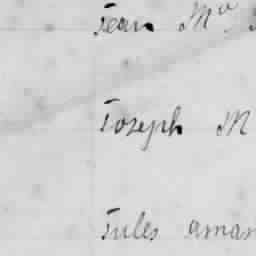 Jean M
Joseph M
Jules aman